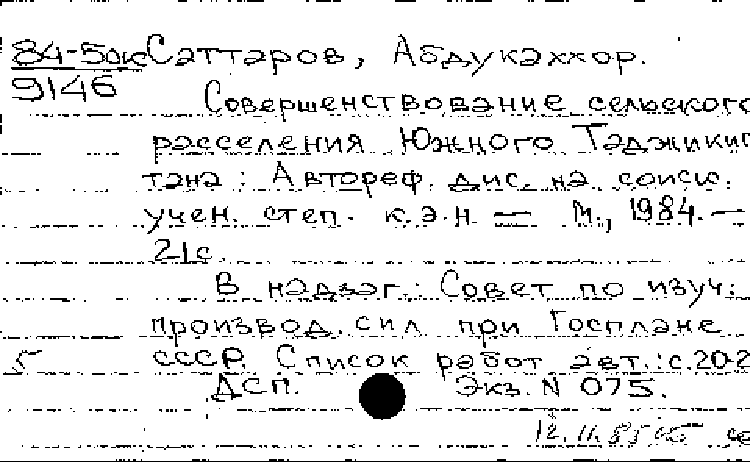 84-5ок Саттаров, Абдукаххор.
9146
Совершенствование сельского
расселения Южного Таджикис
тана: Автореф. дис. на соиск.
учен. степ. к.э.н. — М., 1984. —
21с.
В надзаг.: Совет по изуч.
производ. сил при Госплане
5 СССР. Список работ авт.: с.20-2
ДСП. Экз. N 075.
12.11.85